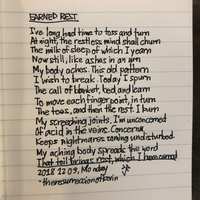 EARNED REST
I've long had time to toss and turn
At night, the restless mind shall churn
The milk of sleep of which I yearn
Now still, like ashes in an urn
My body aches. This old pattern
I wish to break. Today I spurn
The call of blanket, bed and learn
To move each finger, point, in turn
The toes, and then the rest. I burn
My screaming joints. I'm unconcerned
Of acid in the veins. Concerned
Keeps nightmares coming undisturbed.
My aching body spreads the word
That toil brings rest, which I have earned
2018 12 03, Monday
-theresurrectionofkevin